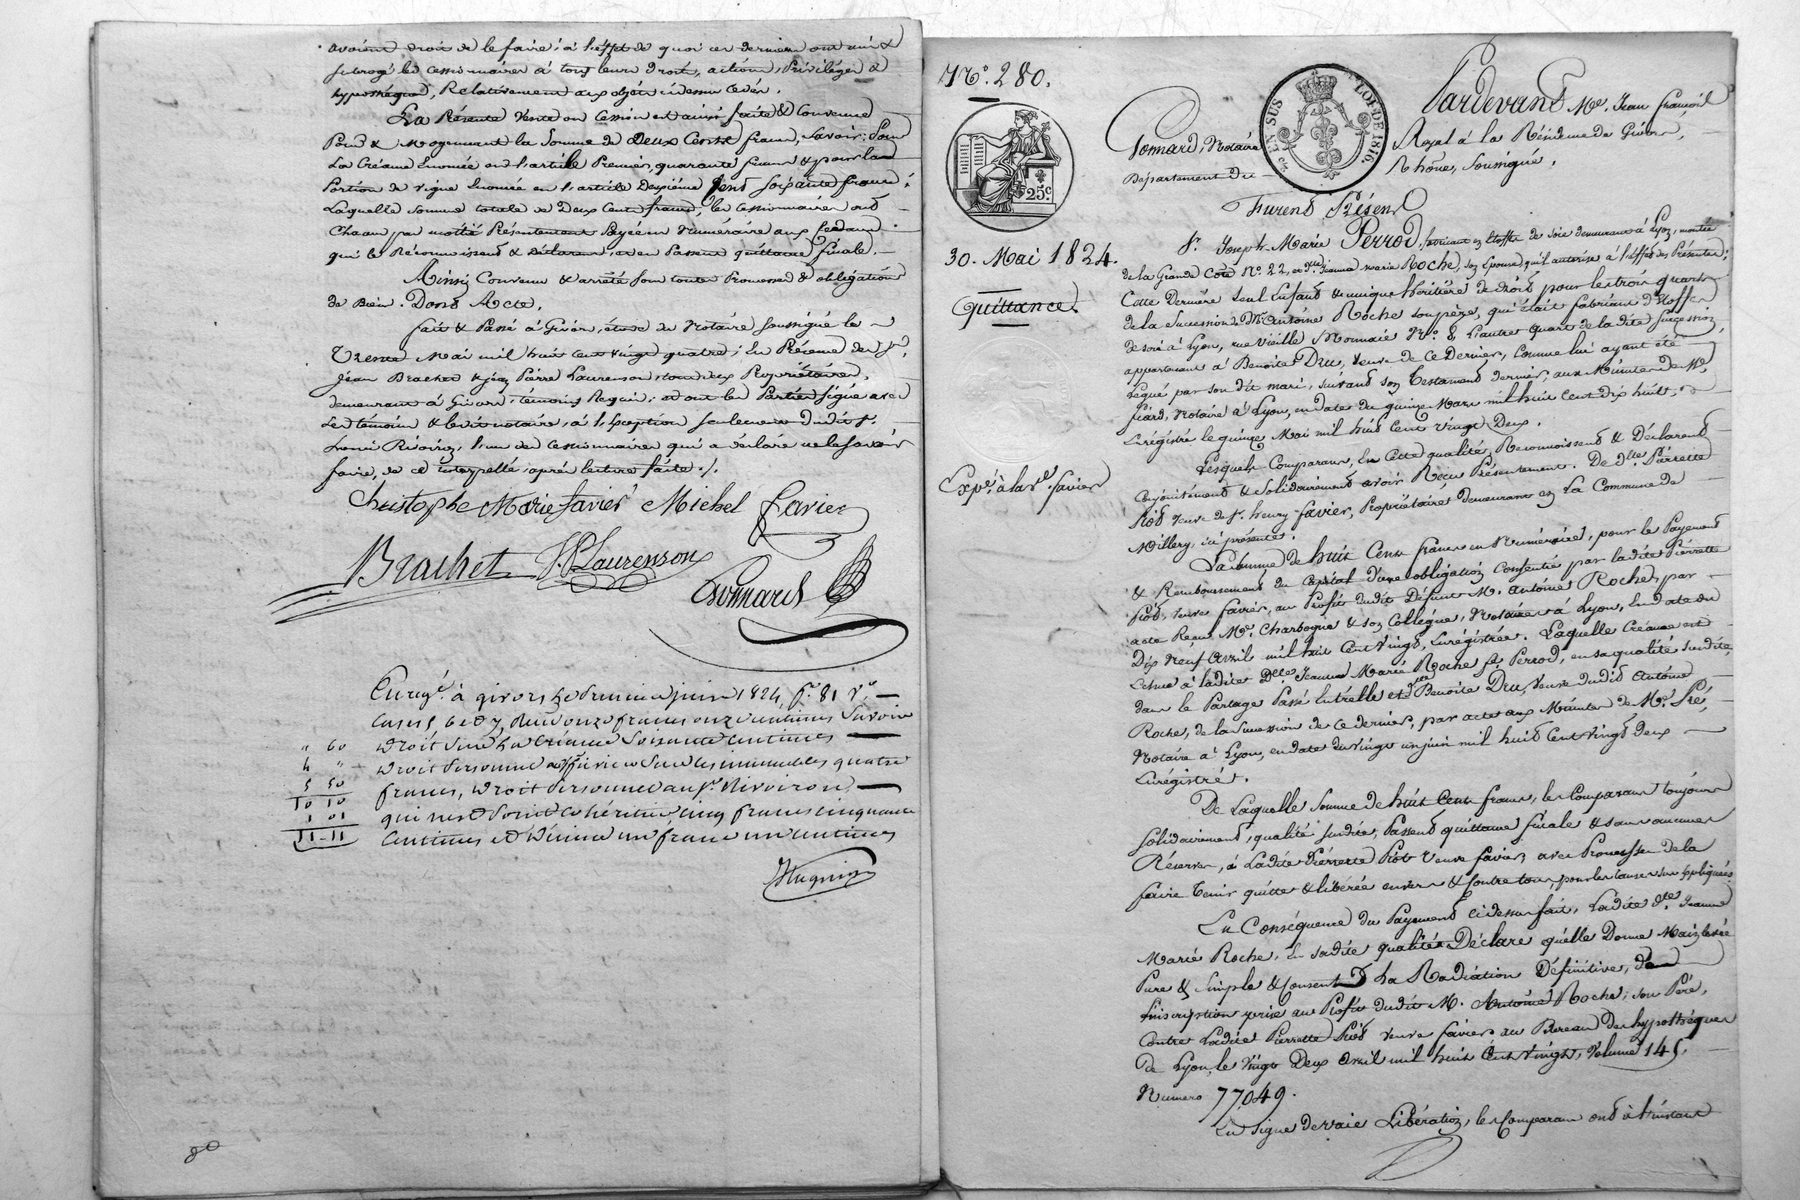 avoient droit de le faire; à l'effet de quoi ces derniers ont mis &
subrogé les cessionnaires à tous leurs droits, actions, Privilèges &
hypothèques, Relativement aux objets cidessus cédés.
La Présente Vente ou Cession est ainsi faite & Convenue
Pour & moyennant la Somme de Deux Cents francs, Savoir: Pour
La Créance Énoncée en l'article Premier, quarante francs & pour la
Portion de Vigne Énoncée en l'article Deuxième Cent soixante francs;
Laquelle somme totale de Deux Cents francs, les cessionnaires ont
Chacun par moitié Présentement Payée en Numéraire aux Cédans
qui le Réconnoissent & Déclarent, et en Passent quittance finale.
Ainsi Convenu & arrêté sous toutes Promesses & obligation
de Bien. Dont Acte.
fait & Passé à Givors, étude du Notaire soussigné le
Trente Mai mil huit cent vingt quatre; En Présence des Srs
Jean Brachet & Jean Pierre Laurenson, tous deux Propriétaires,
demeurant à Givors, témoins Requis; et ont les Parties signé avec
Les témoins & ledit notaire, à l'Exception seulement dudit Sr.
Rivoiron, l'un des Cessionnaires qui a déclaré ne le savoir
faire, de ce interpellé, après lecture faite./.
Christophe Marie favier Michel favier
Brachet J. P. Laurenson
Gonnard
Enregé. à givors le premier juin 1824, fo. 81 Vo.
Cases 5 6 et 7 Reçu onze francs onze centimes Savoir
" 60 droit sur la Créance Soixante centimes
4 " droit sur les immeubles quatre
5 50 francs, droit au Sr. Rivoiron
10 10 qui n'est point cohéritier cinq francs cinquante
1 01 Centimes et Dixième un franc un centimes
11 - 11
Huguin
80
No. 280.
25c.
30. Mai 1824.
Quittance
Expé. à la Ve. favier
EN SUS
LOI DE 1816.
Pardevant Me. Jean françois
Gonnard, Notaire Royal à la Résidence de Givors,
Département du Rhône, soussigné,
Furent Présens
Sr. Joseph Marie Perrod, fabriquant en Etoffes de Soie demeurant à Lyon, montée
de la Grande Côte No. 22, et dme Jeanne Marie Roche, son Épouse qu'il autorise à l'effet des Présentes;
Cette Dernière seul Enfant & unique héritière de droit pour les trois quarts
de la Succession de Mr. Antoine Roche son père, qui était fabriant d'Etoffes
de soie à Lyon, rue Vieille Monnaie No. 8, L'autre quart de la dite succession
appartenant à Benoite Dru, Veuve de ce Dernier, Comme lui ayant été
légué par son dit mari, suivant son Testament dernier, aux Minutes de Me.
notaire à Lyon, en date du quinze Mars mil huit Cent dix huit,
Enrégistré le quinze Mai mil huit Cent Vingt Deux.
Lesquels Comparans, En Cette qualité, Reconnoissent & Déclarent
Conjointement & Solidairement avoir Reçu Présentement. De dme. Pierrette
Piot Veuve de Sr. henry favier, Propriétaire demeurant en La Commune de
Millery, ici présente.
La Somme de huit Cents francs en Numéraire, pour le Payement
& Remboursement du Capital d'une obligation Consentie par ladite Pierrette
Piot, Veuve favier, au Profit dudit Défunt M. Antoine Roche, par
acte Reçu Me. Charbogne & son Collègue, Notaires à Lyon, En date du
Dix neuf Avril mil huit Cent Vingt, Enrégistrée. Laquelle Créance est
échue à ladite Dme Jeanne Marie Roche fe Perrod, en sa qualité susdite,
dans le Partage Passé Entr'elle et dme Benoite Dru, Veuve dudit Antoine
Roche, de la Succession de ce dernier, par acte aux Minutes de Me. Pré,
Notaire à Lyon, en date du Vingt un juin mil huit Cent Vingt deux
Enrégistré.
De Laquelle Somme de huit Cents francs, les Comparans toujours
Solidairement, qualité susdite, Passent quittance finale & sans aucunes
Réserves, à Ladite Pierrette Piot Veuve favier, avec Promesse de la
faire Tenir quitte & libérée envers & Contre tous, pour les Causes sus Expliquées.
En Conséquence du Payement Cidessus fait, Ladite dme. Jeanne
Marie Roche, En sadite qualité Déclare qu'elle Donne Mainlevée
Pure & Simple & Consent à La Radiation Définitive, de
l'inscription prise au Profit dudit M. Antoine Roche, son Père,
Contre Ladite Pierrette Piot Veuve favier au Bureau des hypothèques
de Lyon, le Vingt Deux Avril mil huit Cent Vingt, Volume 145,
Numéro 77049.
En Signe de vraie Libération, les Comparans ont à l'instant